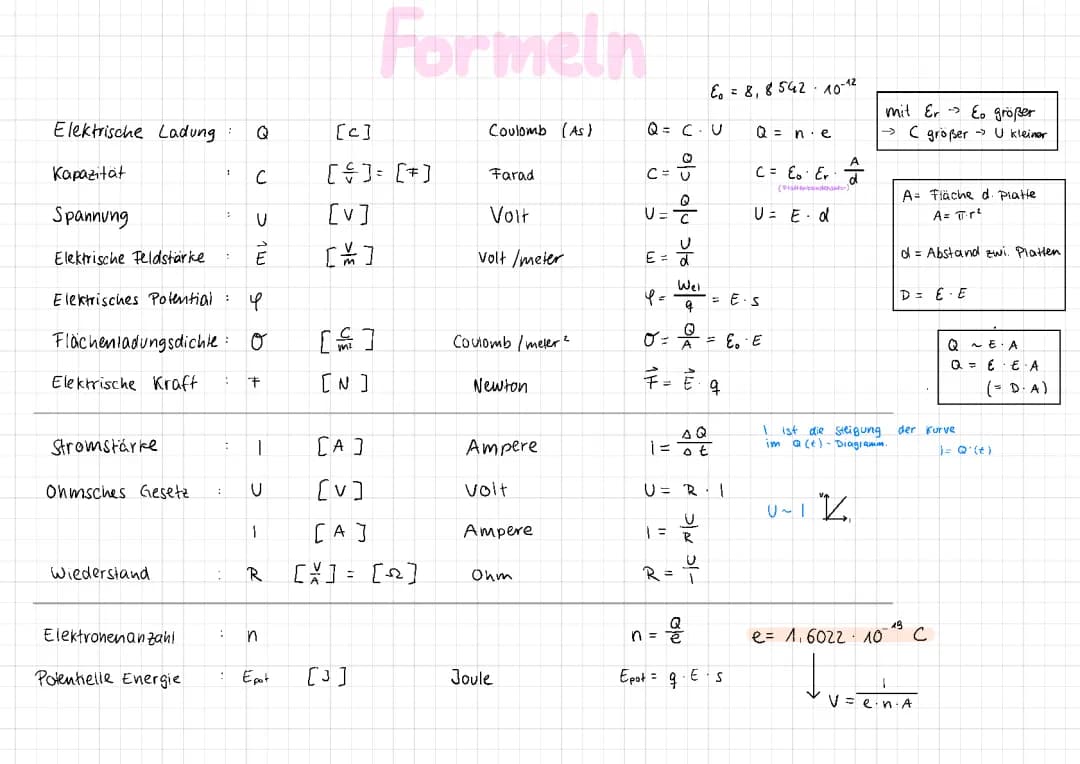 Formeln
ε₀ = 8,8542 · 10⁻¹²
mit εr → ε₀ größer
→ C größer → U kleiner
Elektrische Ladung : Q [C] Coulomb (As) Q = C · U Q = n · e
Kapazität : C [C/V] = [F] Farad C = Q/U C = ε₀ · εr · A/d
Spannung : U [V] Volt U = Q/C U = E · d
Elektrische Feldstärke : E⃗ [V/m] Volt/meter E = U/d
Elektrisches Potential : φ φ = Wel/q = E · s
Flächenladungsdichte : σ [C/m²] Coulomb/meter² σ = Q/A = ε₀ · E
Elektrische Kraft : F [N] Newton F⃗ = E⃗ · q
A = Fläche d. Platte
A = π · r²
d = Abstand zwi. Platten
D = ε · E
Q ~ E · A
Q = ε · E · A
(= D · A)
Stromstärke : I [A] Ampere I = ΔQ/Δt
I ist die Steigung der Kurve
im Q(t) - Diagramm.
I = Q'(t)
Ohmsches Gesetz : U [V] Volt U = R · I
I [A] Ampere I = U/R
U ~ I
Wiederstand : R [V/A] = [Ω] Ohm R = U/I
Elektronenanzahl : n n = Q/e e = 1,6022 · 10⁻¹⁹ C
Potentielle Energie : Epot [J] Joule Epot = q · E · s
V = I/(e · n · A)